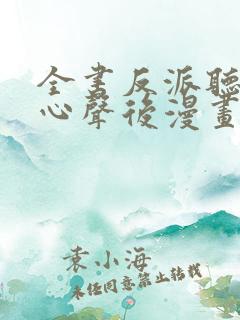 全書反派聽
心聲後漫畫
袁小海
未經同意禁止轉載